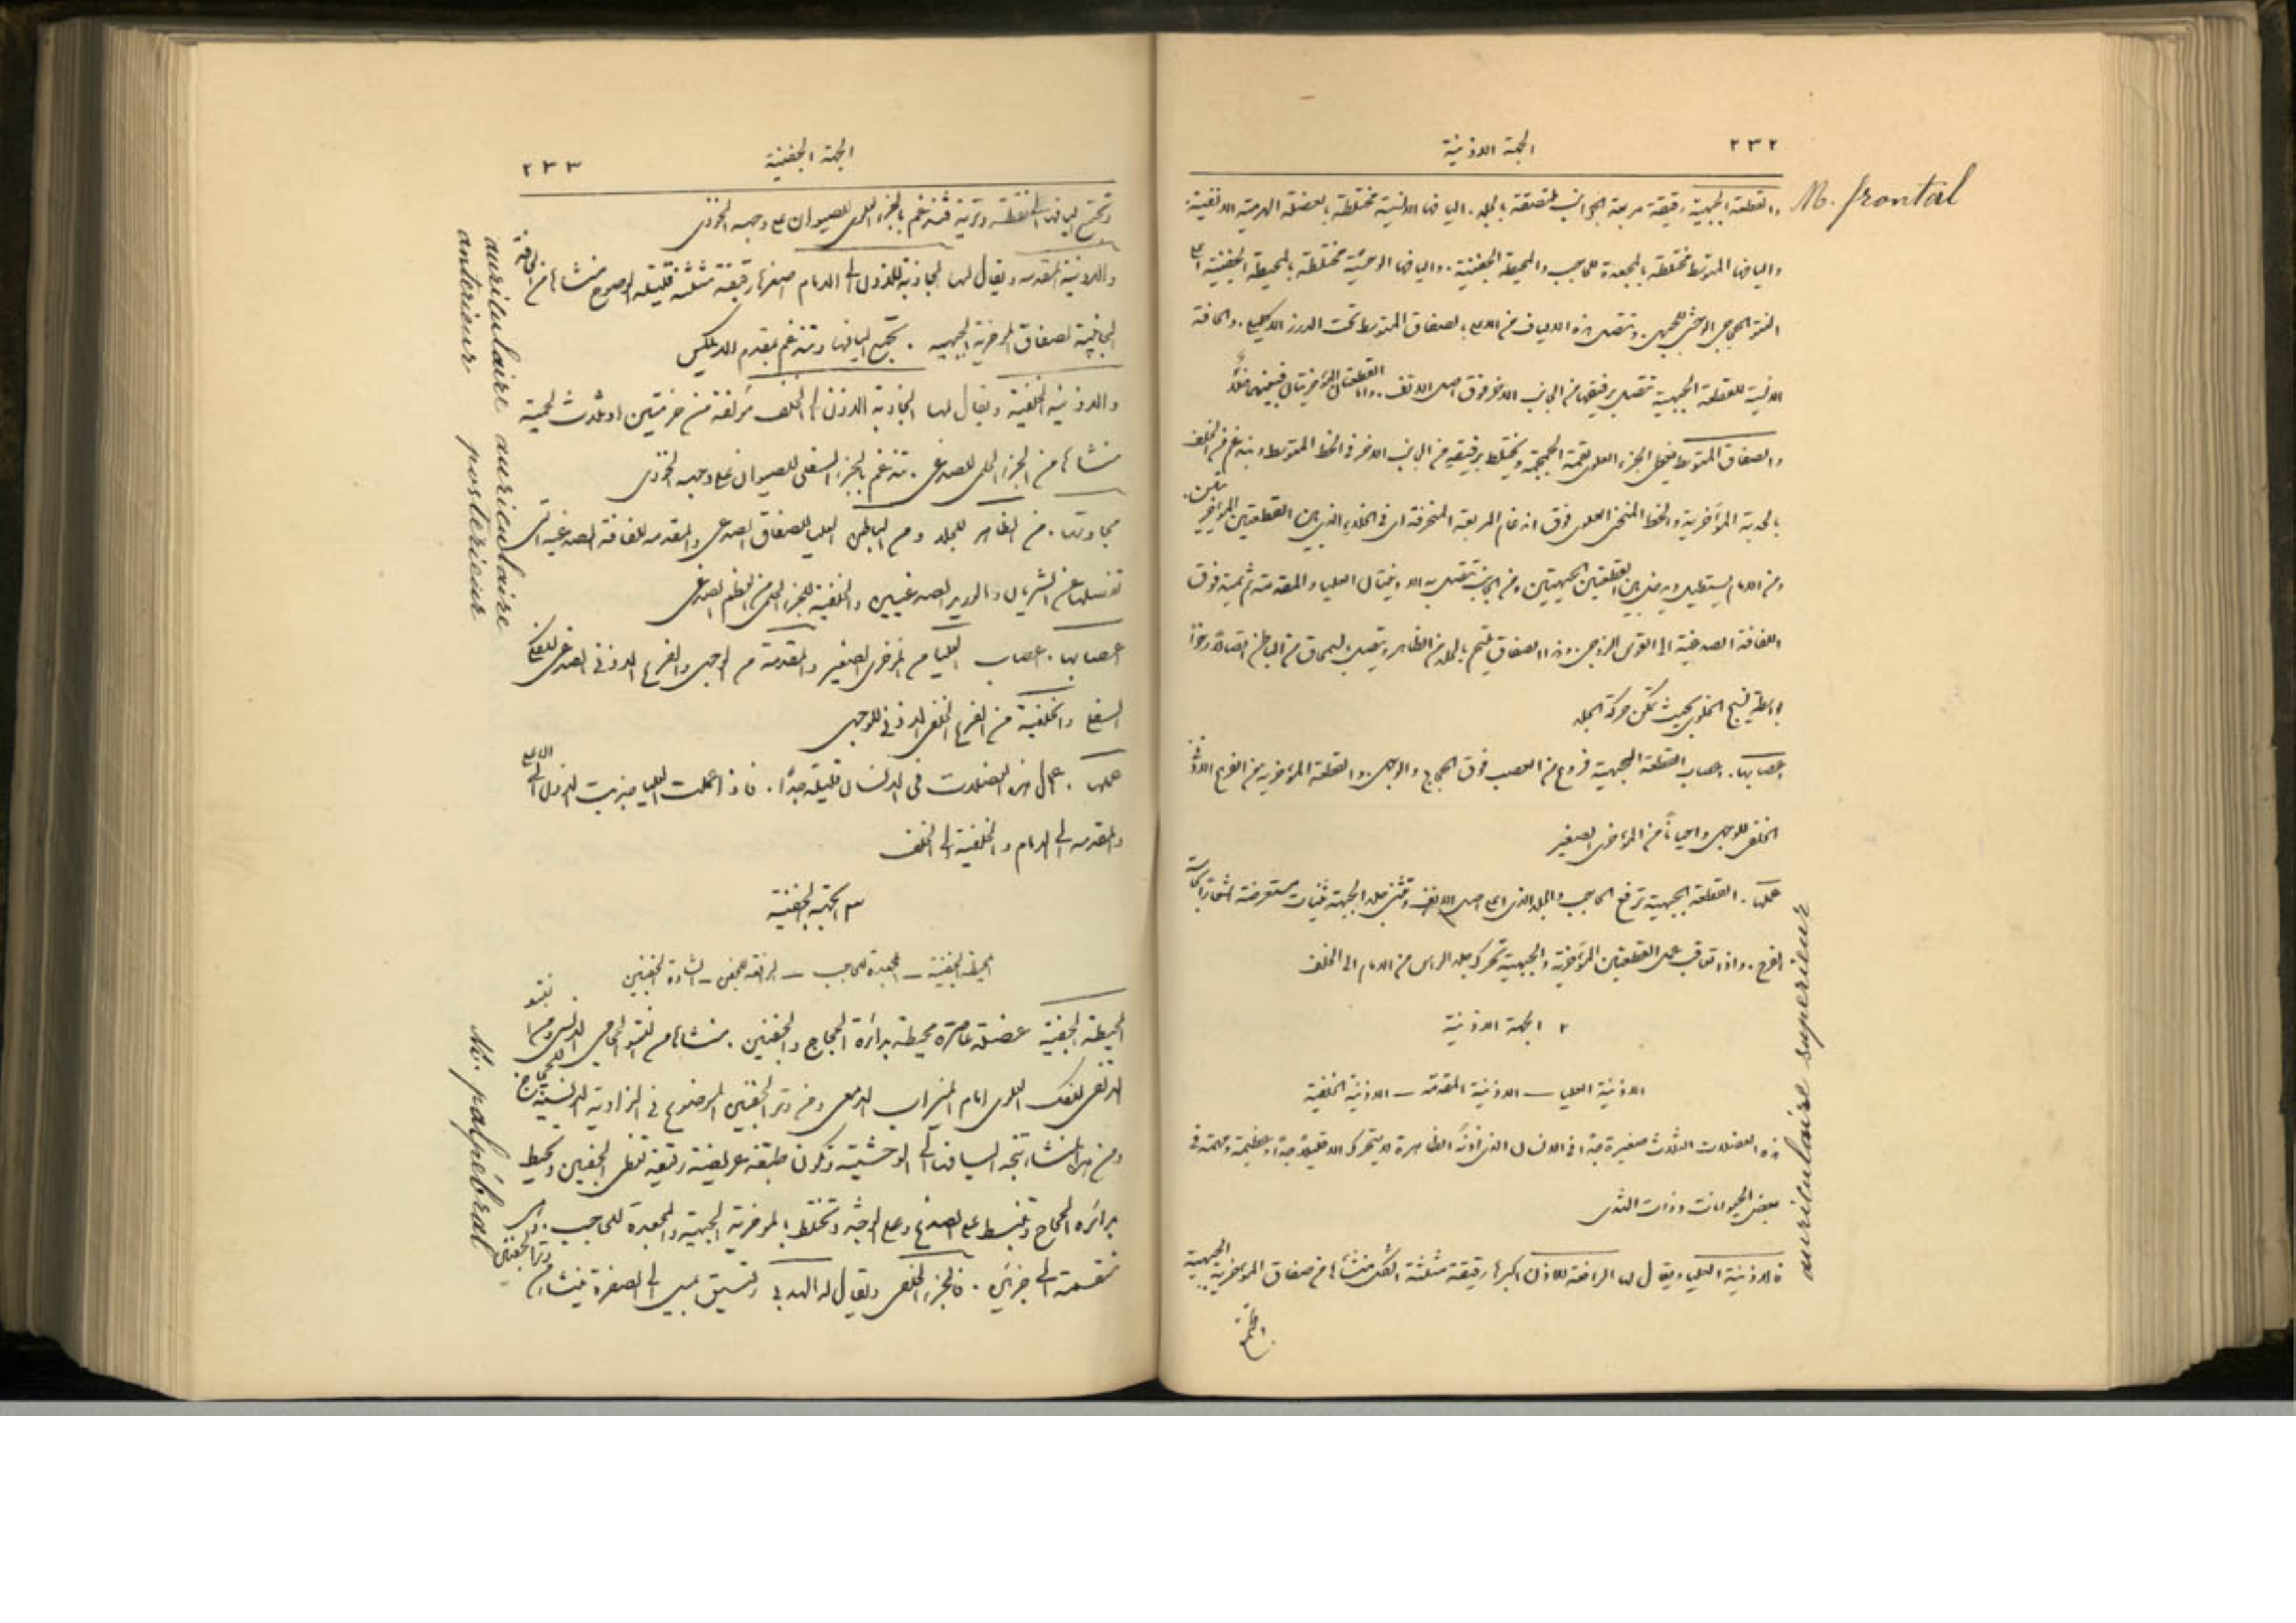 ٢٣٢
الجهة الاذنية
M. frontal
والقطعة الجبهية رقيقة مربعة الجوانب ملتصقة بالجلد. اليافها الانسية مختلطة بالعضلة الهرمية الانفية.
واليافها المتوسطة مختلطة بالمجعدة للحاجب والمحيطة الجفنية. واليافها الوحشية مختلطة بالمحيطة الجفنية على
النتو الحجاجي الوحشي للجبهي. وتتصل هذه الالياف من الاعلى بالصفاق المتوسط تحت الدرز الاكليلي. والحافة
الانسية للقطعة الجبهية تتصل برفيقتها من الجانب الاخر فوق اصل الانف. واما القطعتان المؤخريتان فبينهما خلاء
والصفاق المتوسط يغطي الجزء العلوي لقمة الجمجمة ويختلط برفيقه من الجانب الاخر في الخط المتوسط ويندغم في الخلف
بالحدبة المؤخرية والخط المنحني العلوي فوق اندغام المربعة المنحرفة اي في الخلاء الذي بين القطعتين المؤخريتين.
ومن الامام يستطيل ويدخل بين القطعتين الجبهيتين ومن الجانب تتصل به الاذنيتان العليا والمقدمة ثم يمتد فوق
اللفافة الصدغية الى القوس الزوجي. وهذا الصفاق ملتحم بالجلد من الظاهر ويتصل بالسمحاق من الباطن اتصالا رخوا
بواسطة نسيج الخلوي بحيث تمكن حركة الجلد
اعصابها. اعصاب القطعة الجبهية فروع من العصب فوق الحجاج والوجهي. والقطعة المؤخرية من الفرع الاذني
الخلفي للوجهي واحيانا من المؤخري الصغير
عملها. القطعة الجبهية ترفع الحاجب والجلد الذي على اصل الانف وتثني جلد الجبهة ثنيات مستعرضة
الفرح. واذا تعاقب عمل القطعتين المؤخرية والجبهية تحرك جلد الراس من الامام الى الخلف
٢ الجهة الاذنية
الاذنية العليا — الاذنية المقدمة — الاذنية الخلفية
هذه العضلات الثلاث صغيرة جدا في الانسان الذي اذنه الظاهرة لا تتحرك الا قليلا جدا وعظيمة ومهمة في
بعض الحيوانات ذوات الثدي
auriculaire superieur
فالاذنية العليا ويقال لها الرافعة للاذن اكبرها رقيقة مثلثة الشكل منشاها من صفاق المؤخرية الجبهية
وتجتمع
٢٣٣
الجهة الجفنية
وتجتمع اليافها الى نقطة وترية فتندغم بالجزء العلوي للصيوان على وجهه الخفي
auriculaire anterieur
والاذنية المقدمة ويقال لها الجاذبة للاذن الى الامام اصغرها رقيقة مثلثة قليلة الوضوح منشاها من الحافة
الجانبية لصفاق المؤخرية الجبهية. تجتمع اليافها وتندغم بمقدم الهيلكس
auriculaire posterieur
والاذنية الخلفية ويقال لها الجاذبة الاذن الى الخلف مؤلفة من حزمتين او ثلاث لحمية
منشاها من الجزء الحلمي للصدغي. تندغم بالجزء السفلي للصيوان على وجهه الخفي
مجاورتها. من الظاهر للجلد ومن الباطن العليا للصفاق الصدغي والمقدمة للفافة الصدغية التي
تفصلها عن الشريان والوريد الصدغيين والخلفية للجزء الحلمي من العظم الصدغي
اعصابها. اعصاب العليا من المؤخري الصغير والمقدمة من الوجهي والفرع الاذني الصدغي للفكي
السفلي والخلفية من الفرع الخلفي الاذني للوجهي
عملها. عمل هذه العضلات في الانسان قليلة جدا. فاذا عملت العليا جذبت الاذن الى الاعلى
والمقدمة الى الامام والخلفية الى الخلف
٣ الجهة الجفنية
المحيطة الجفنية — المجعدة للحاجب — الرافعة للجفن — الشادة الجفنين
M. palpébral
المحيطة الجفنية عضلة عاصرة محيطة بدائرة الحجاج والجفنين. منشاها من النتو الحجاجي الانسي ومن النتو
الانفي للفك العلوي امام الميزاب الدمعي ومن وتر الجفنين الموضوع في الزاوية الانسية للحجاج
ومن هذا المنشا تتجه اليافها الى الوحشية وتكون طبقة عريضة رقيقة تغطي الجفنين وتحيط
بدائرة الحجاج وتنبسط على الصدغ وعلى الوجنة وتختلط بالمؤخرية الجبهية والمجعدة للحاجب. وتر الجفنين
منقسمة الى جزئين. فالجزء الجفني ويقال له الهدبي رقيق يميل الى الصفرة ينشا من